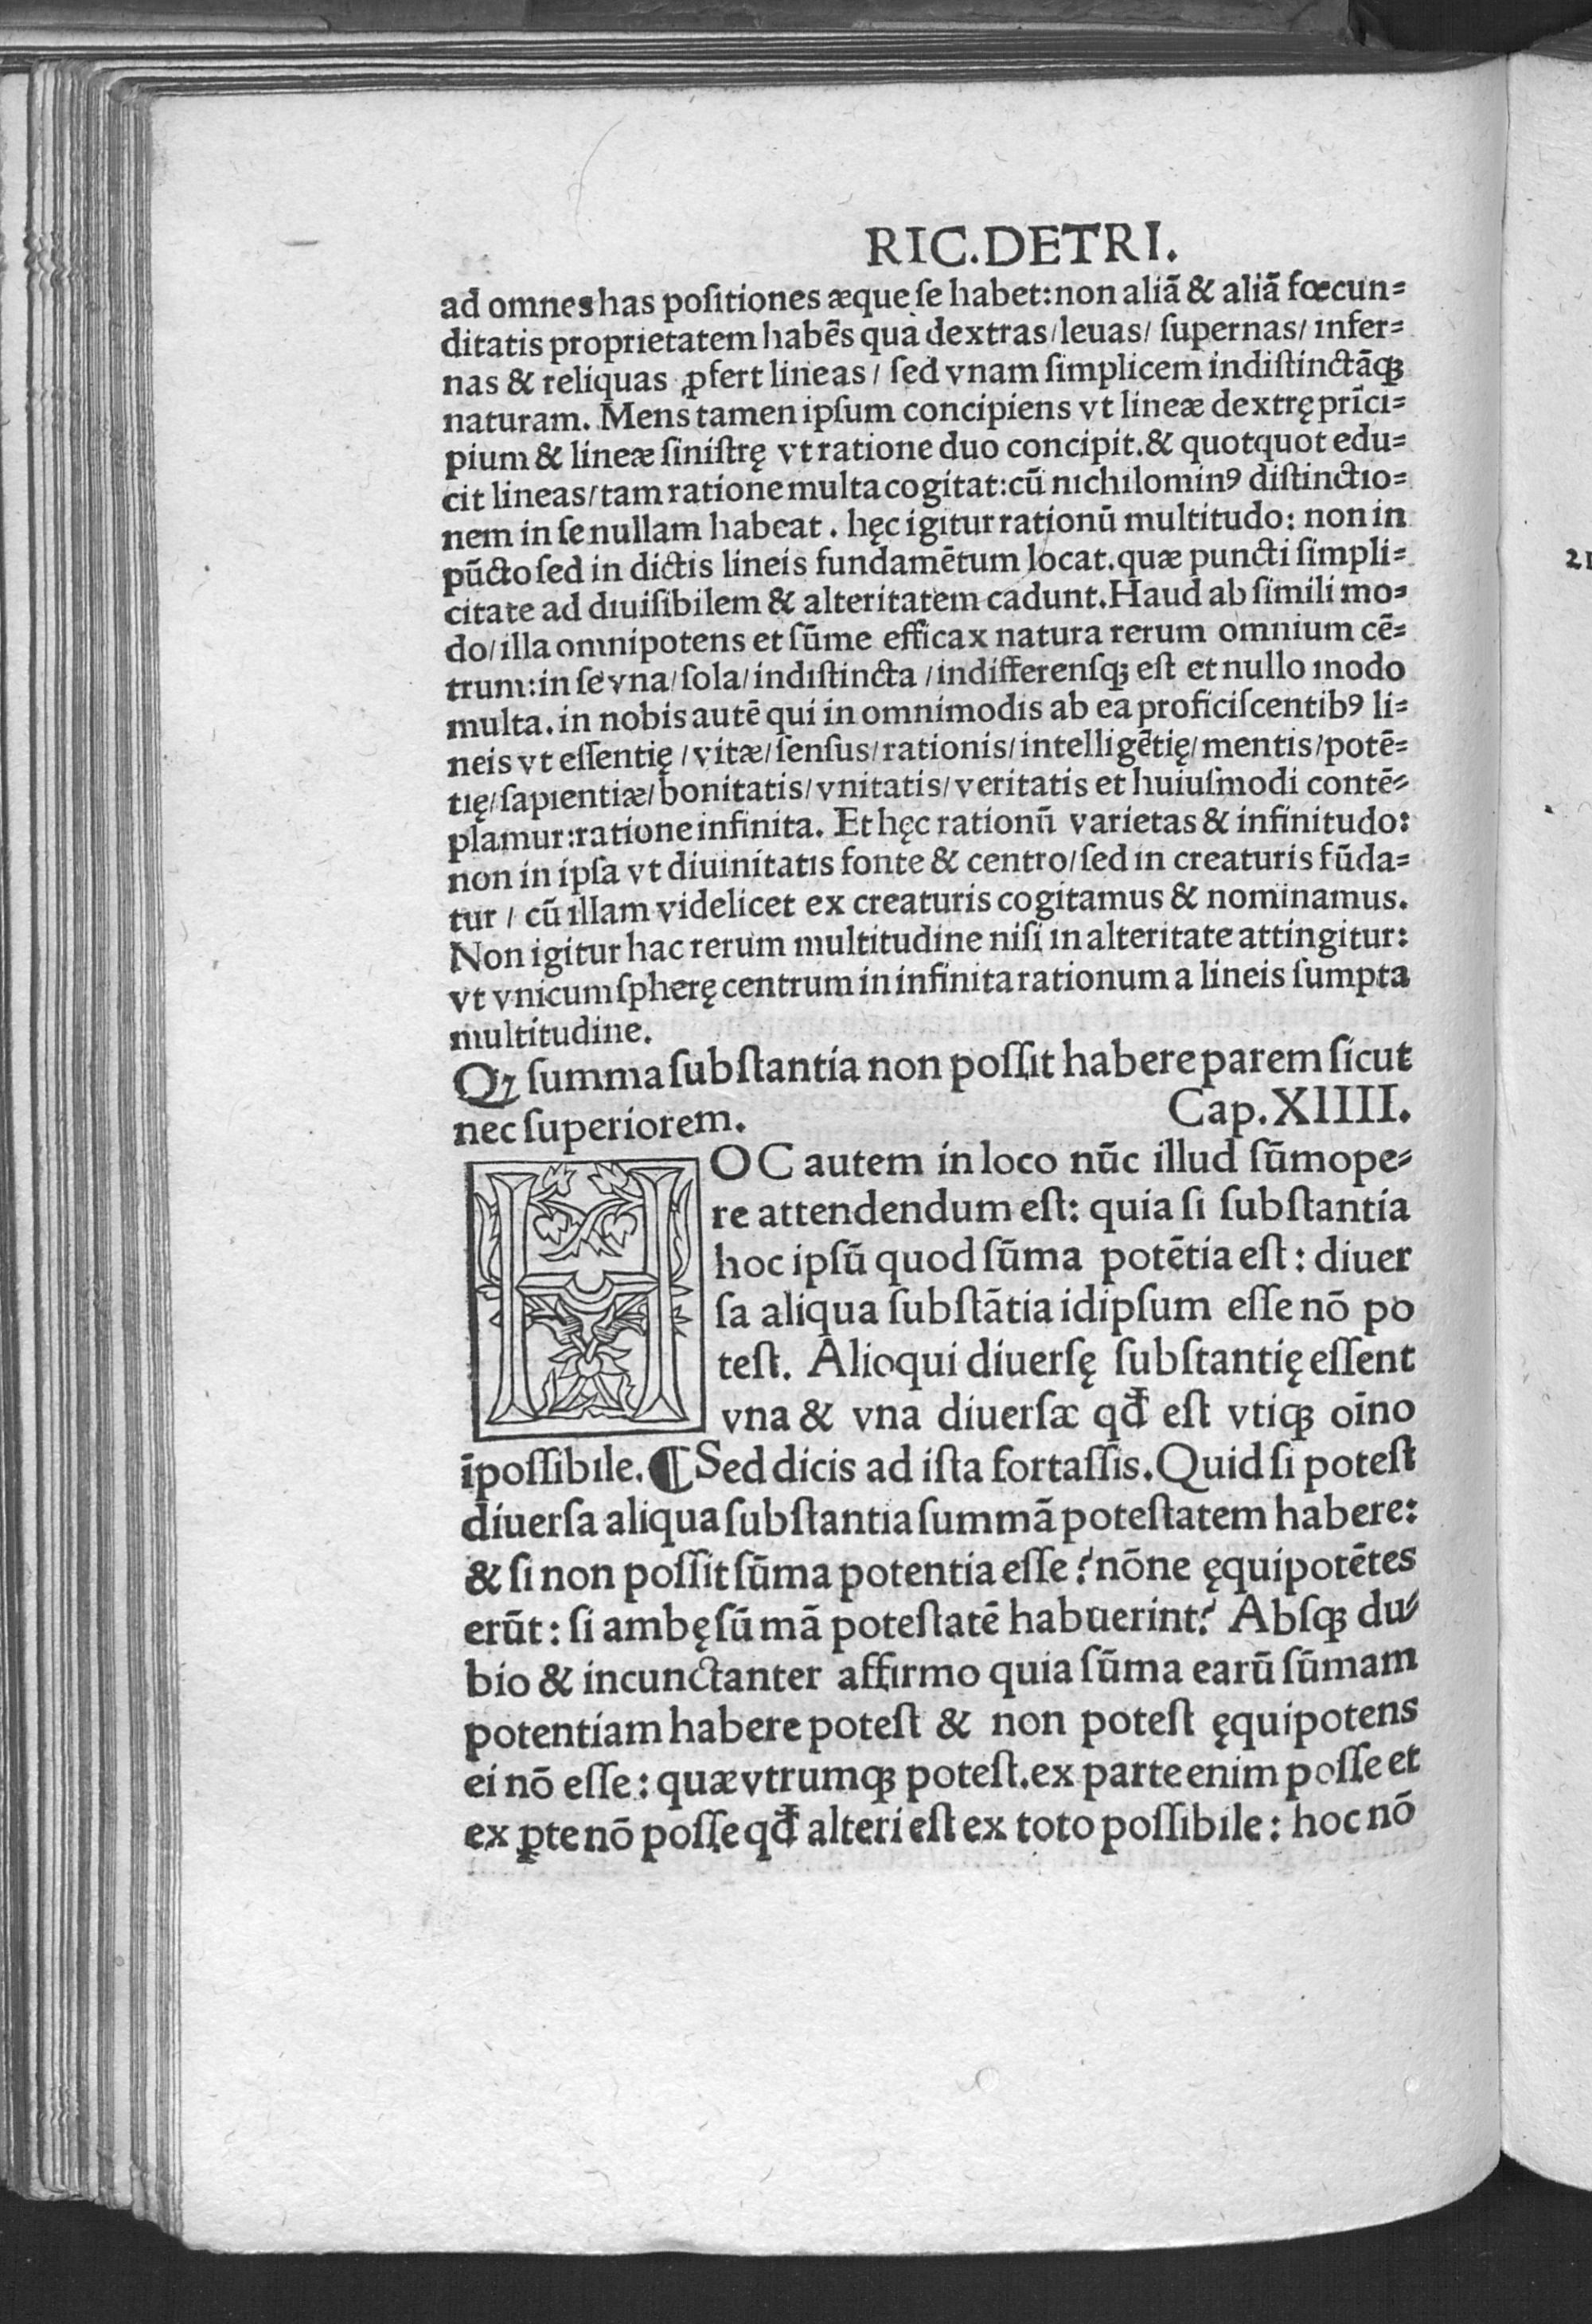 RIC.DETRI.
ad omnes has poſitiones æque ſe habet: non aliā & aliā fœcun=
ditatis proprietatem habēs qua dextras/leuas/ ſupernas/ infer=
nas & reliquas ꝓfert lineas / ſed vnam ſimplicem indiſtinctāqꝫ
naturam. Mens tamen ipſum concipiens vt lineæ dextrę prīci=
pium & lineæ ſiniſtrę vt ratione duo concipit. & quotquot edu=
cit lineas/tam ratione multa cogitat: cū nichilominꝰ diſtinctio=
nem in ſe nullam habeat . hęc igitur rationū multitudo: non in
pūcto ſed in dictis lineis fundamētum locat. quæ puncti ſimpli=
citate ad diuiſibilem & alteritatem cadunt. Haud ab ſimili mo=
do/illa omnipotens et ſūme efficax natura rerum omnium cē=
trum: in ſe vna/ſola/indiſtincta /indifferenſqꝫ eſt et nullo modo
multa. in nobis autē qui in omnimodis ab ea proficiſcentibꝰ li=
neis vt eſſentię /vitæ/ſenſus/rationis/intelligētię/mentis/potē=
tię/ſapientiæ/bonitatis/vnitatis/veritatis et huiuſmodi contē=
plamur: ratione infinita. Et hęc rationū varietas & infinitudo:
non in ipſa vt diuinitatis fonte & centro/ſed in creaturis fūda=
tur / cū illam videlicet ex creaturis cogitamus & nominamus.
Non igitur hac rerum multitudine niſi in alteritate attingitur:
vt vnicum ſpherę centrum in infinita rationum a lineis ſumpta
multitudine.
Qꝫ ſumma ſubſtantia non poſſit habere parem ſicut
nec ſuperiorem. Cap.XIIII.
HOC autem in loco nūc illud ſūmope=
re attendendum eſt: quia ſi ſubſtantia
hoc ipſū quod ſūma potētia eſt: diuer
ſa aliqua ſubſtātia idipſum eſſe nō po
teſt. Alioqui diuerſę ſubſtantię eſſent
vna & vna diuerſæ qđ eſt vtiqꝫ oīno
īpoſſibile. ¶ Sed dicis ad iſta fortaſſis. Quid ſi poteſt
diuerſa aliqua ſubſtantia ſummā poteſtatem habere:
& ſi non poſſit ſūma potentia eſſe? nōne ęquipotētes
erūt: ſi ambę ſūmā poteſtatē habuerint? Abſqꝫ du=
bio & incunctanter affirmo quia ſūma earū ſūmam
potentiam habere poteſt & non poteſt ęquipotens
ei nō eſſe: quæ vtrumqꝫ poteſt. ex parte enim poſſe et
ex ꝑte nō poſſe qđ alteri eſt ex toto poſſibile: hoc nō